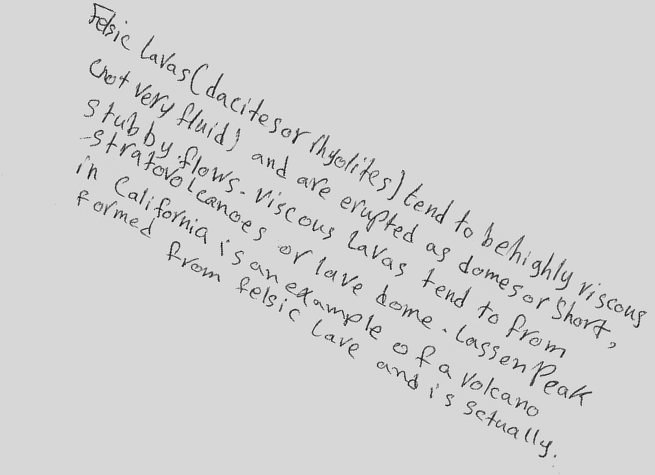 Felsic Lavas (dacites or rhyolites) tend to be highly viscous
(not very fluid) and are erupted as domes or short,
stubby flows. Viscous lavas tend to from
-stratovolcanoes or lave dome. Lassen Peak
in California is an example of a volcano
formed from felsic lave and is sctually.